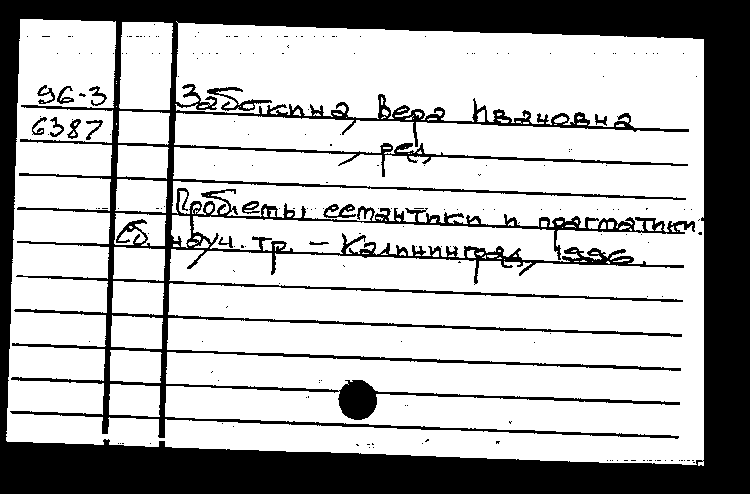 96-3 Заботкина, Вера Ивановна
6387 , ред.
Проблемы семантики и прагматики:
Сб. науч. тр. – Калининград, 1996.